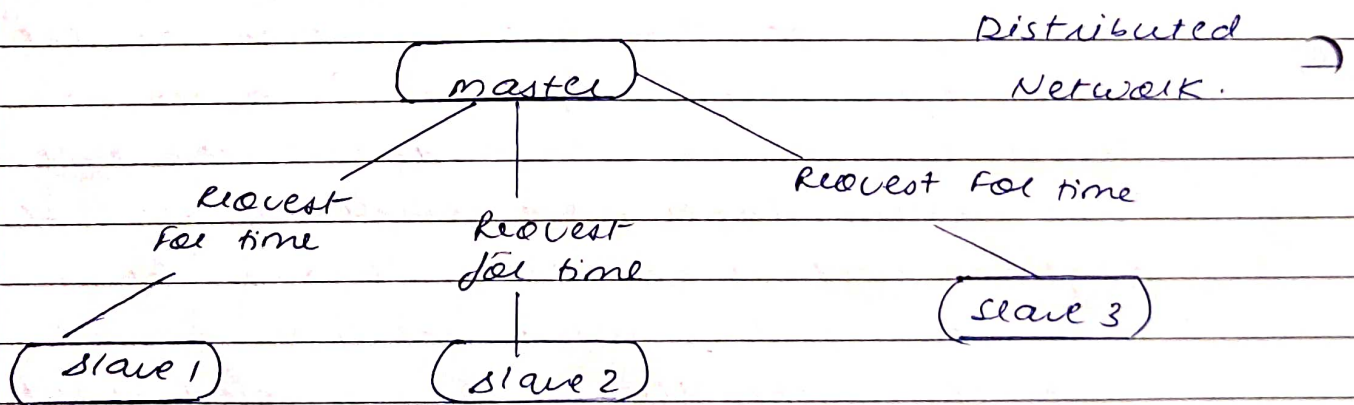 Distributed
Network.
master
Request
For time
Request
for time
Request For time
slave 1
slave 2
slave 3